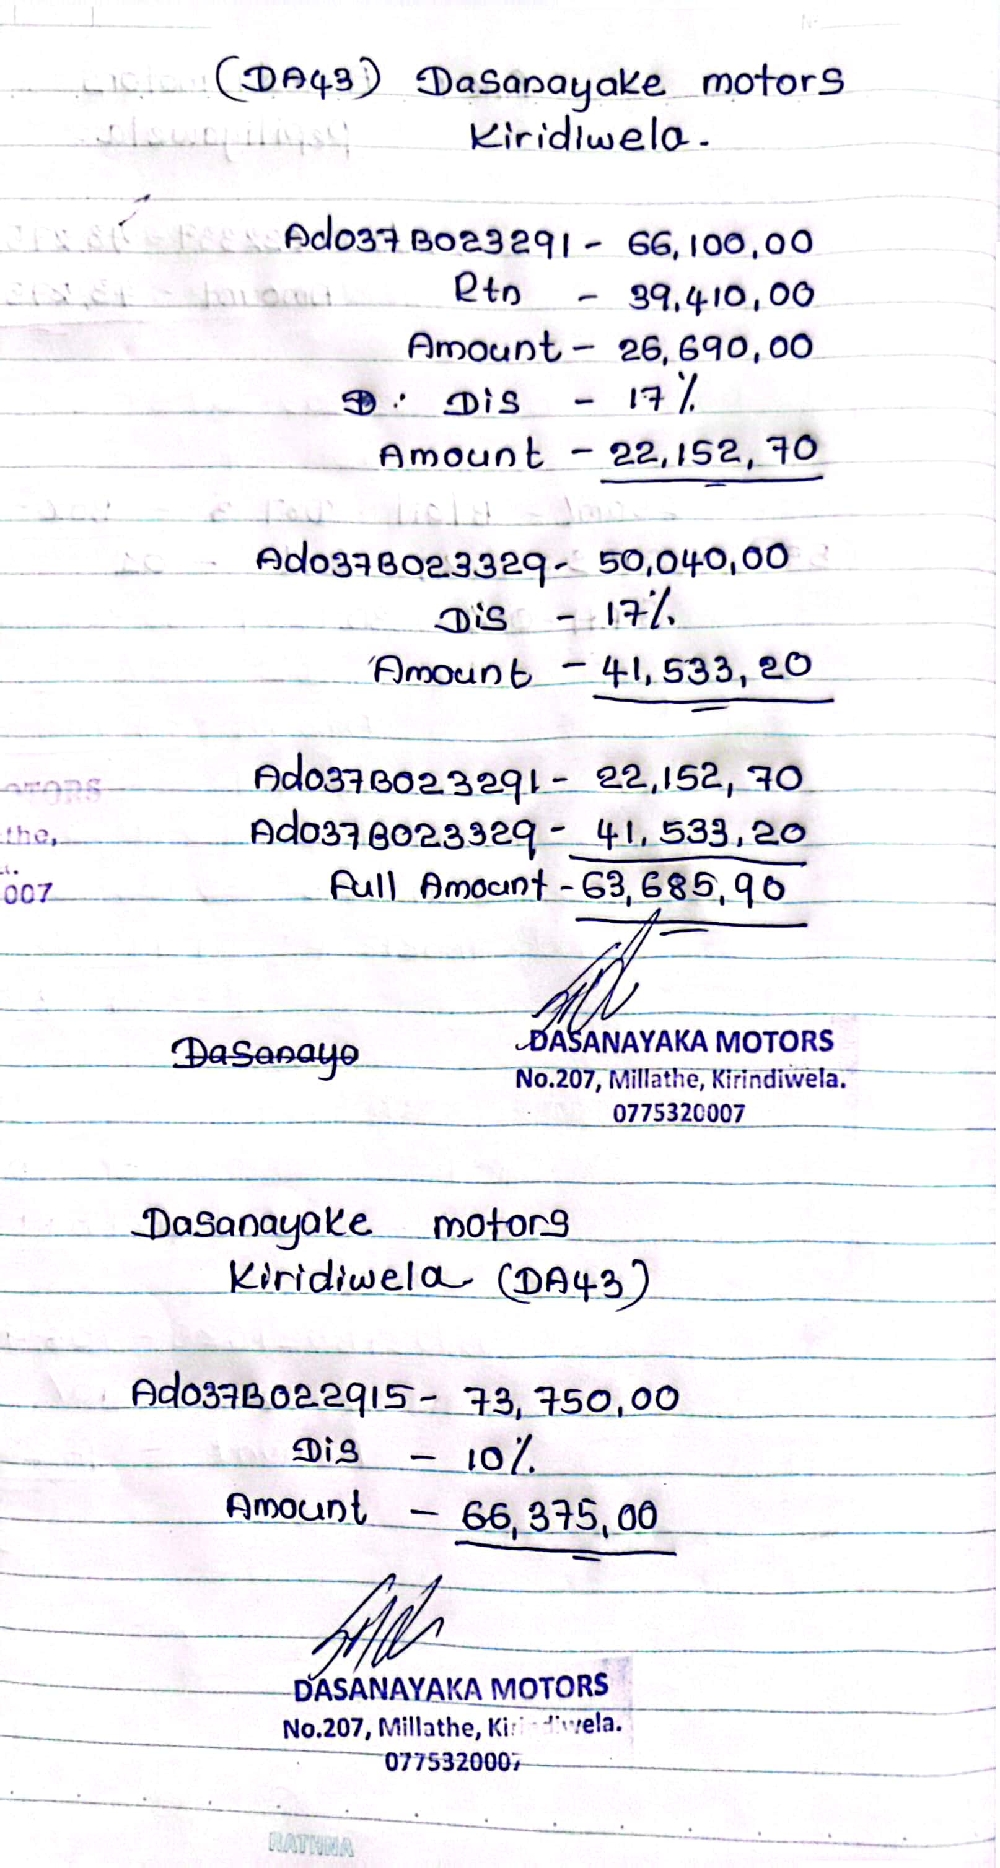 (DA43) Dasanayake motors
Kiridiwela.
Ado37B023291 - 66,100,00
Rtn - 39,410,00
Amount - 26,690,00
Dis - 17%
Amount - 22,152,70
Ado37B023329 - 50,040,00
Dis - 17%
Amount - 41,533,20
Ado37B023291 - 22,152,70
Ado37B023329 - 41,533,20
Full Amount - 63,685,90
DASANAYAKA MOTORS
No.207, Millathe, Kirindiwela.
0775320007
Dasanayo
Dasanayake motors
Kiridiwela (DA43)
Ado37B022915 - 73,750,00
Dis - 10%
Amount - 66,375,00
DASANAYAKA MOTORS
No.207, Millathe, Kirindiwela.
0775320007
RATHNA